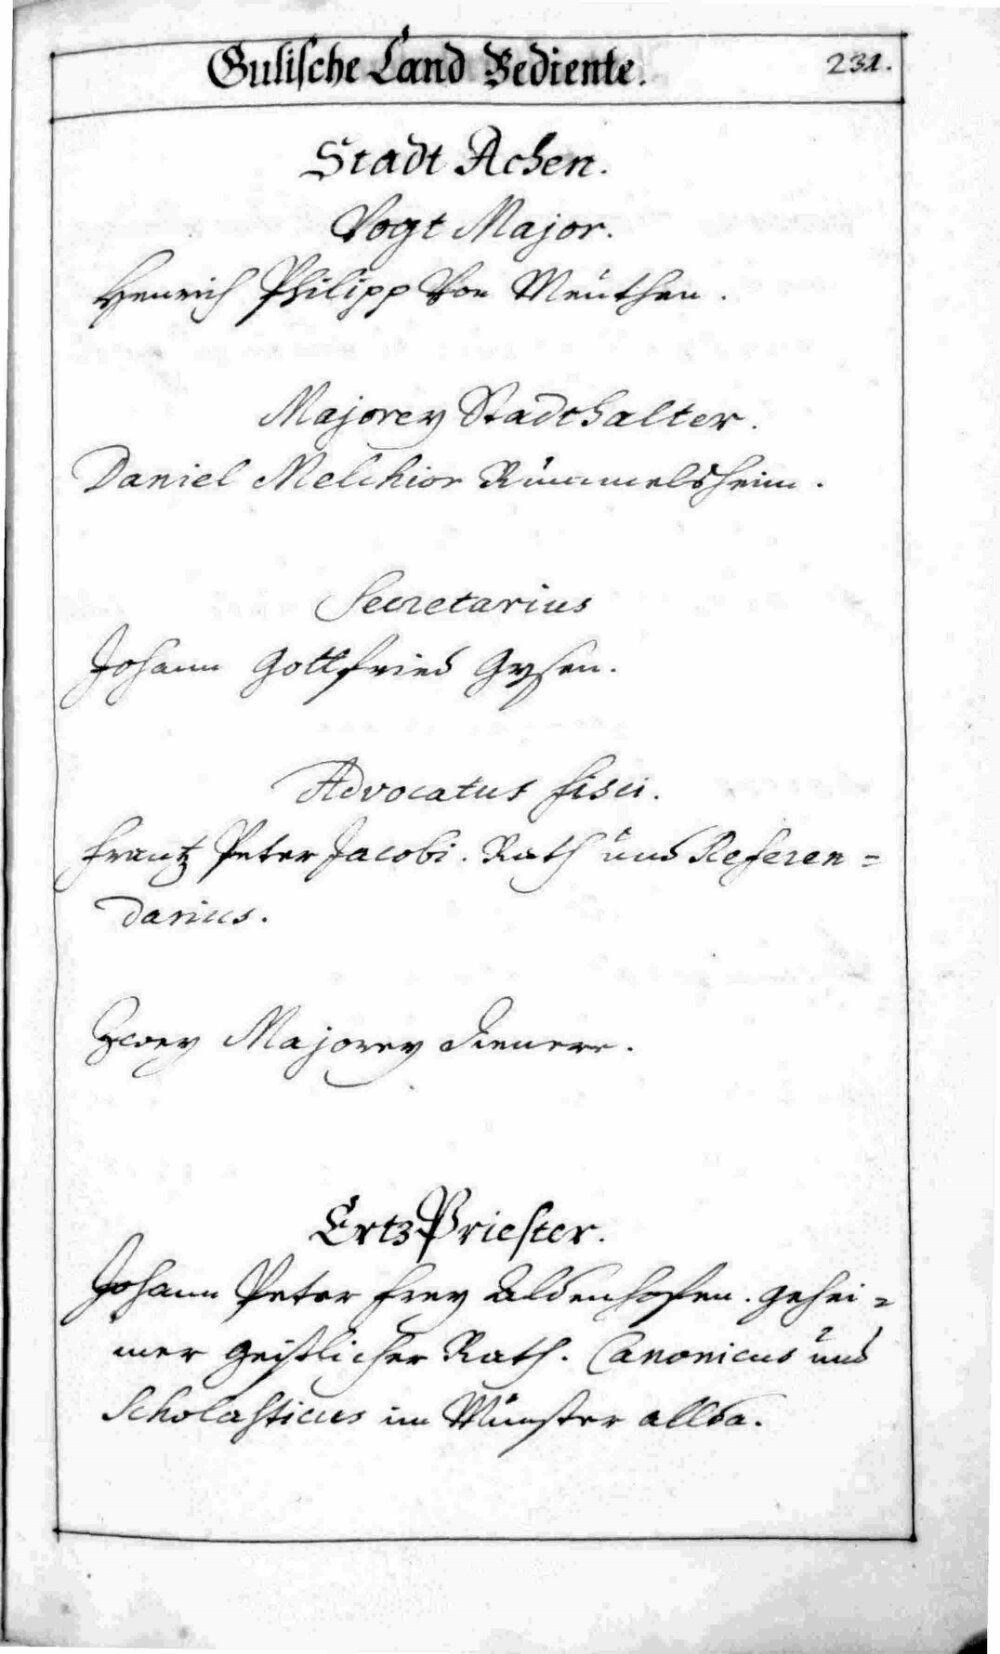 Gulische Land Bediente.
231.
Stadt Achen.
Vogt Major.
Henrich Philipp Von Meuthen.
Majorey Stadthalter.
Daniel Melchior Rümmelsheim.
Secretarius
Johann Gottfried Gysen.
Advocatus fisci.
Frantz Peter Jacobi. Rath und Referen=
darius.
Zwey Majorey Dienere.
Ertz Priester.
Johann Peter Frey Aldenhofen. gehei=
mer geistlicher Rath. Canonicus und
Scholasticus im Münster allda.